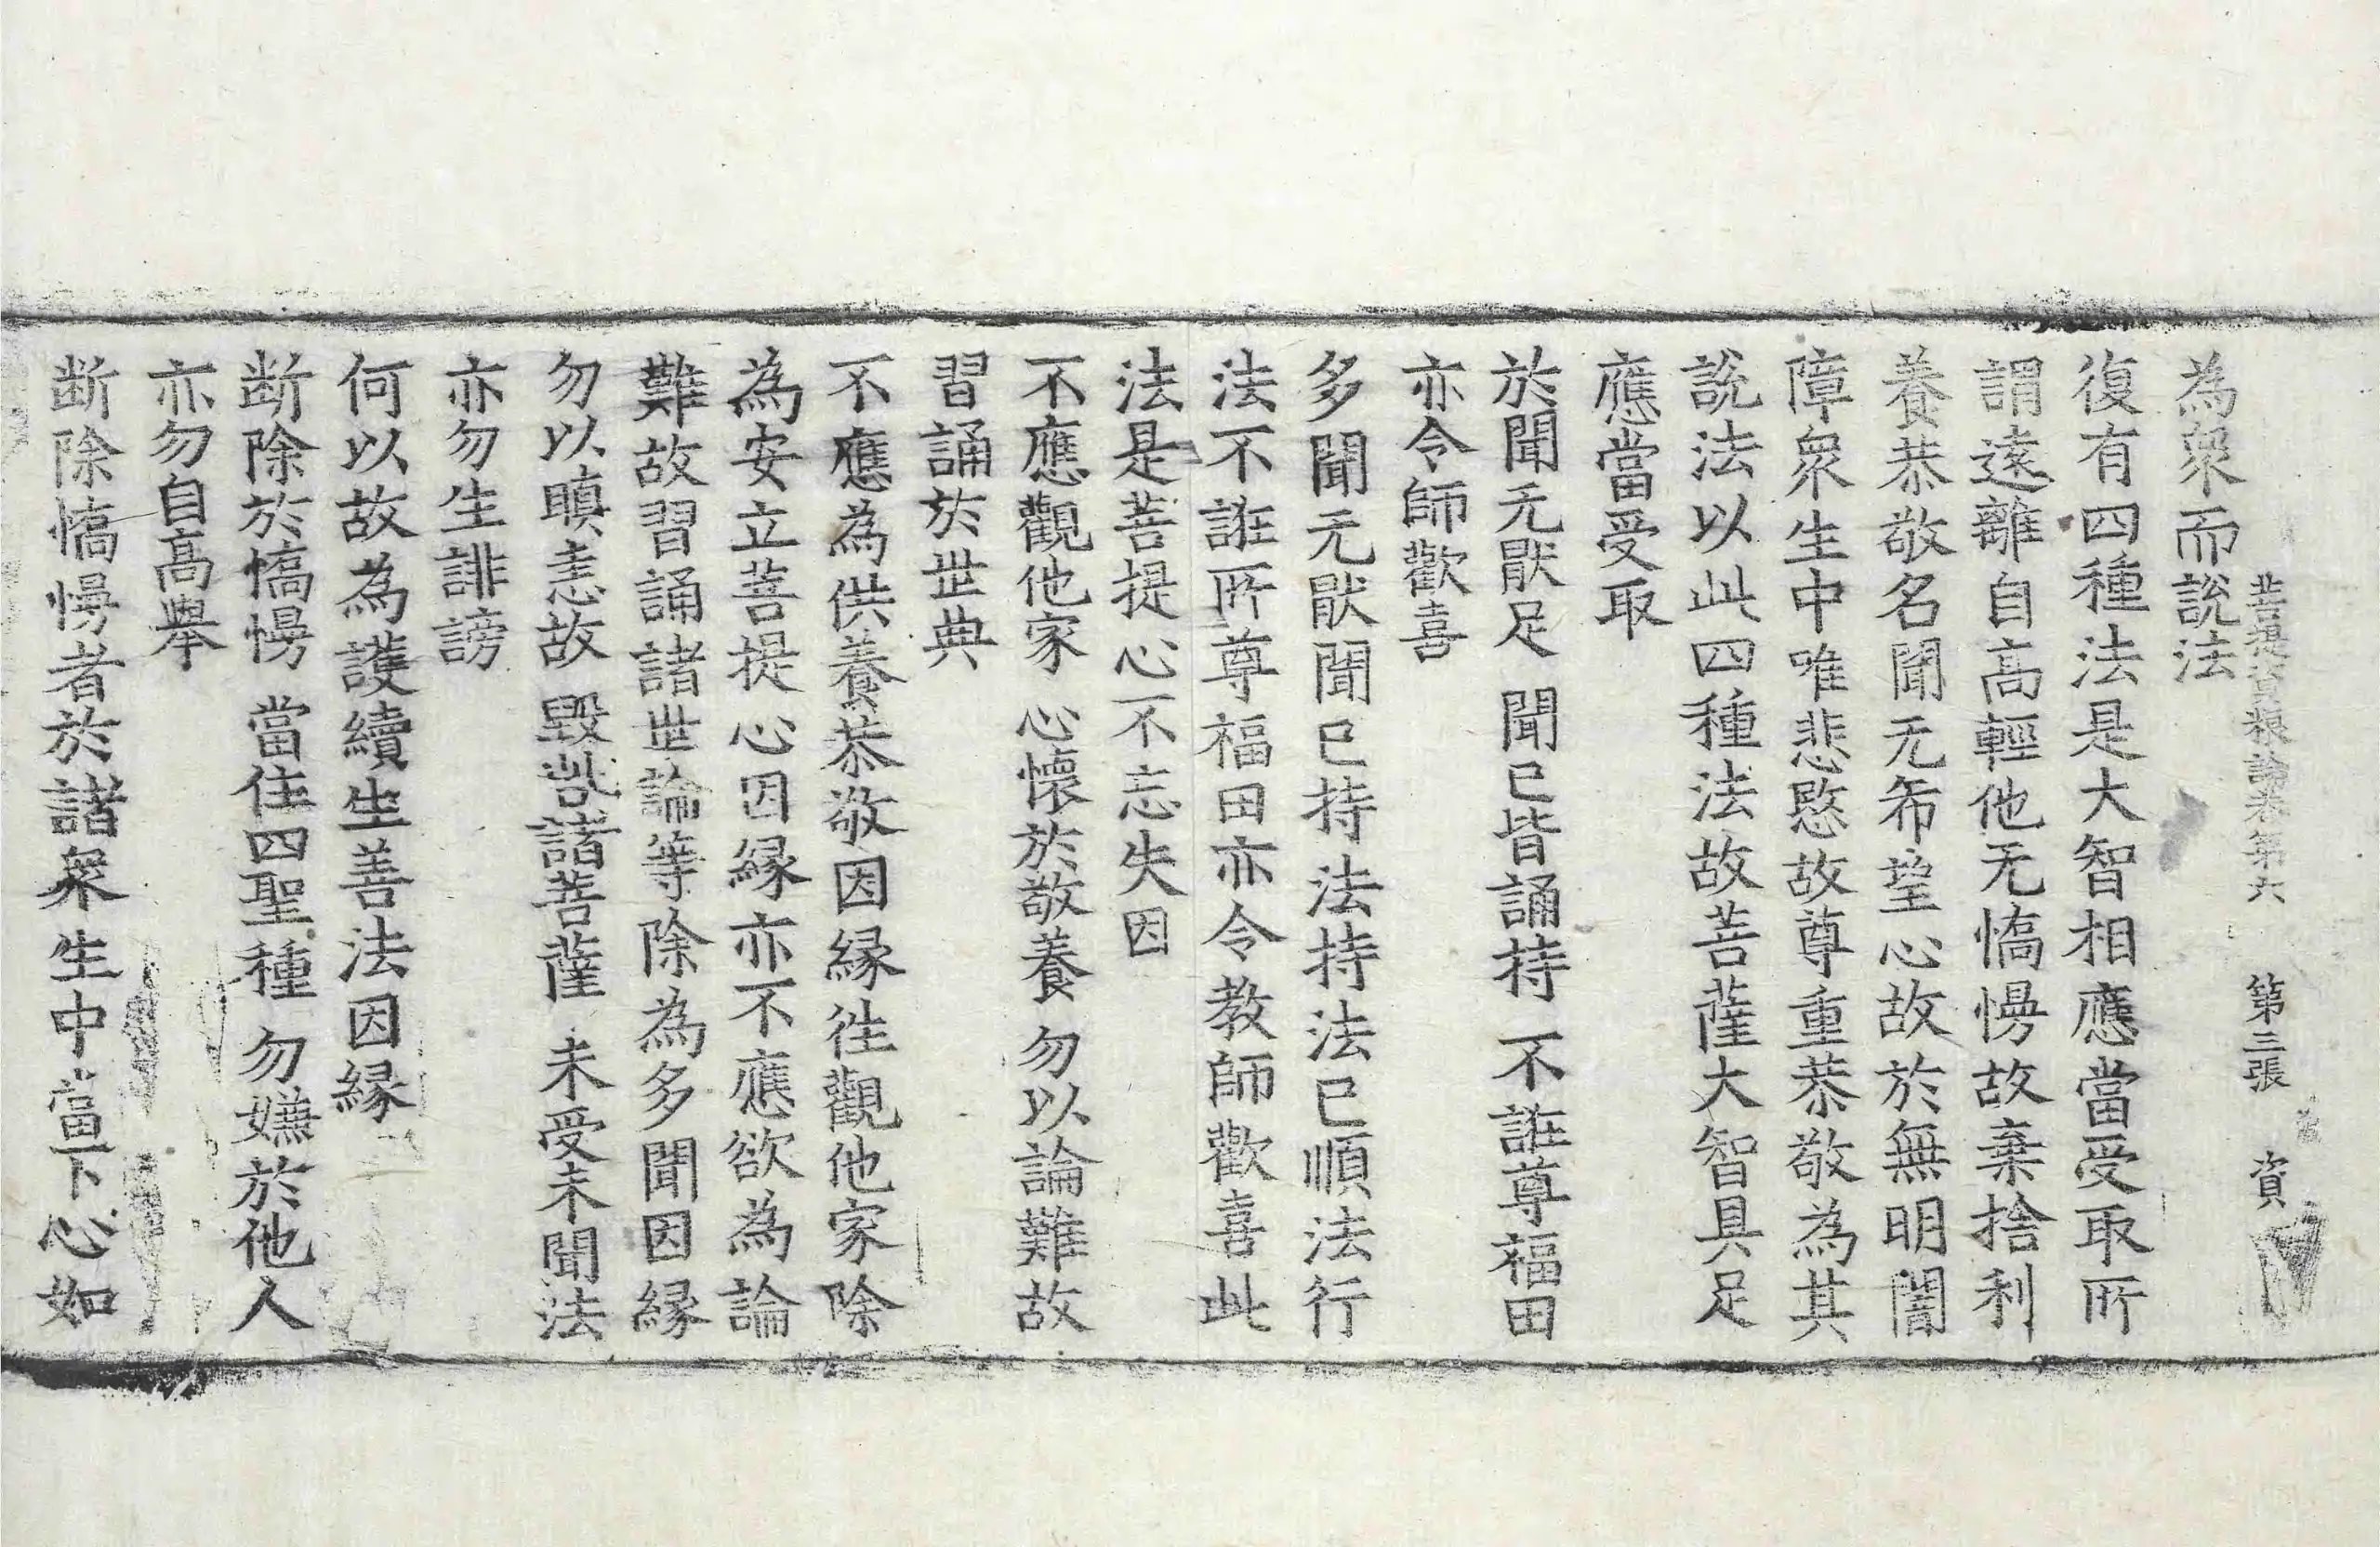 菩提資粮論卷第六　第三張　資
為衆而說法
復有四種法是大智相應當受取所
謂遠離自高輕他无憍慢故棄捨利
養恭敬名聞无希望心故於無明闇
障衆生中唯悲愍故尊重恭敬為其
說法以此四種法故菩薩大智具足
應當受取
於聞无猒足　聞已皆誦持　不誑尊福田
亦令師歡喜
多聞无猒聞已持法持法已順法行
法不誑所尊福田亦令教師歡喜此
法是菩提心不忘失因
不應觀他家　心懷於敬養　勿以論難故
習誦於世典
不應為供養恭敬因緣往觀他家除
為安立菩提心因緣亦不應欲為論
難故習誦諸世論等除為多聞因緣
勿以瞋恚故　毀呰諸菩薩　未受未聞法
亦勿生誹謗
何以故為護續生善法因緣
断除於憍慢　當住四聖種　勿嫌於他人
亦勿自高舉
断除憍慢者於諸衆生中當下心如